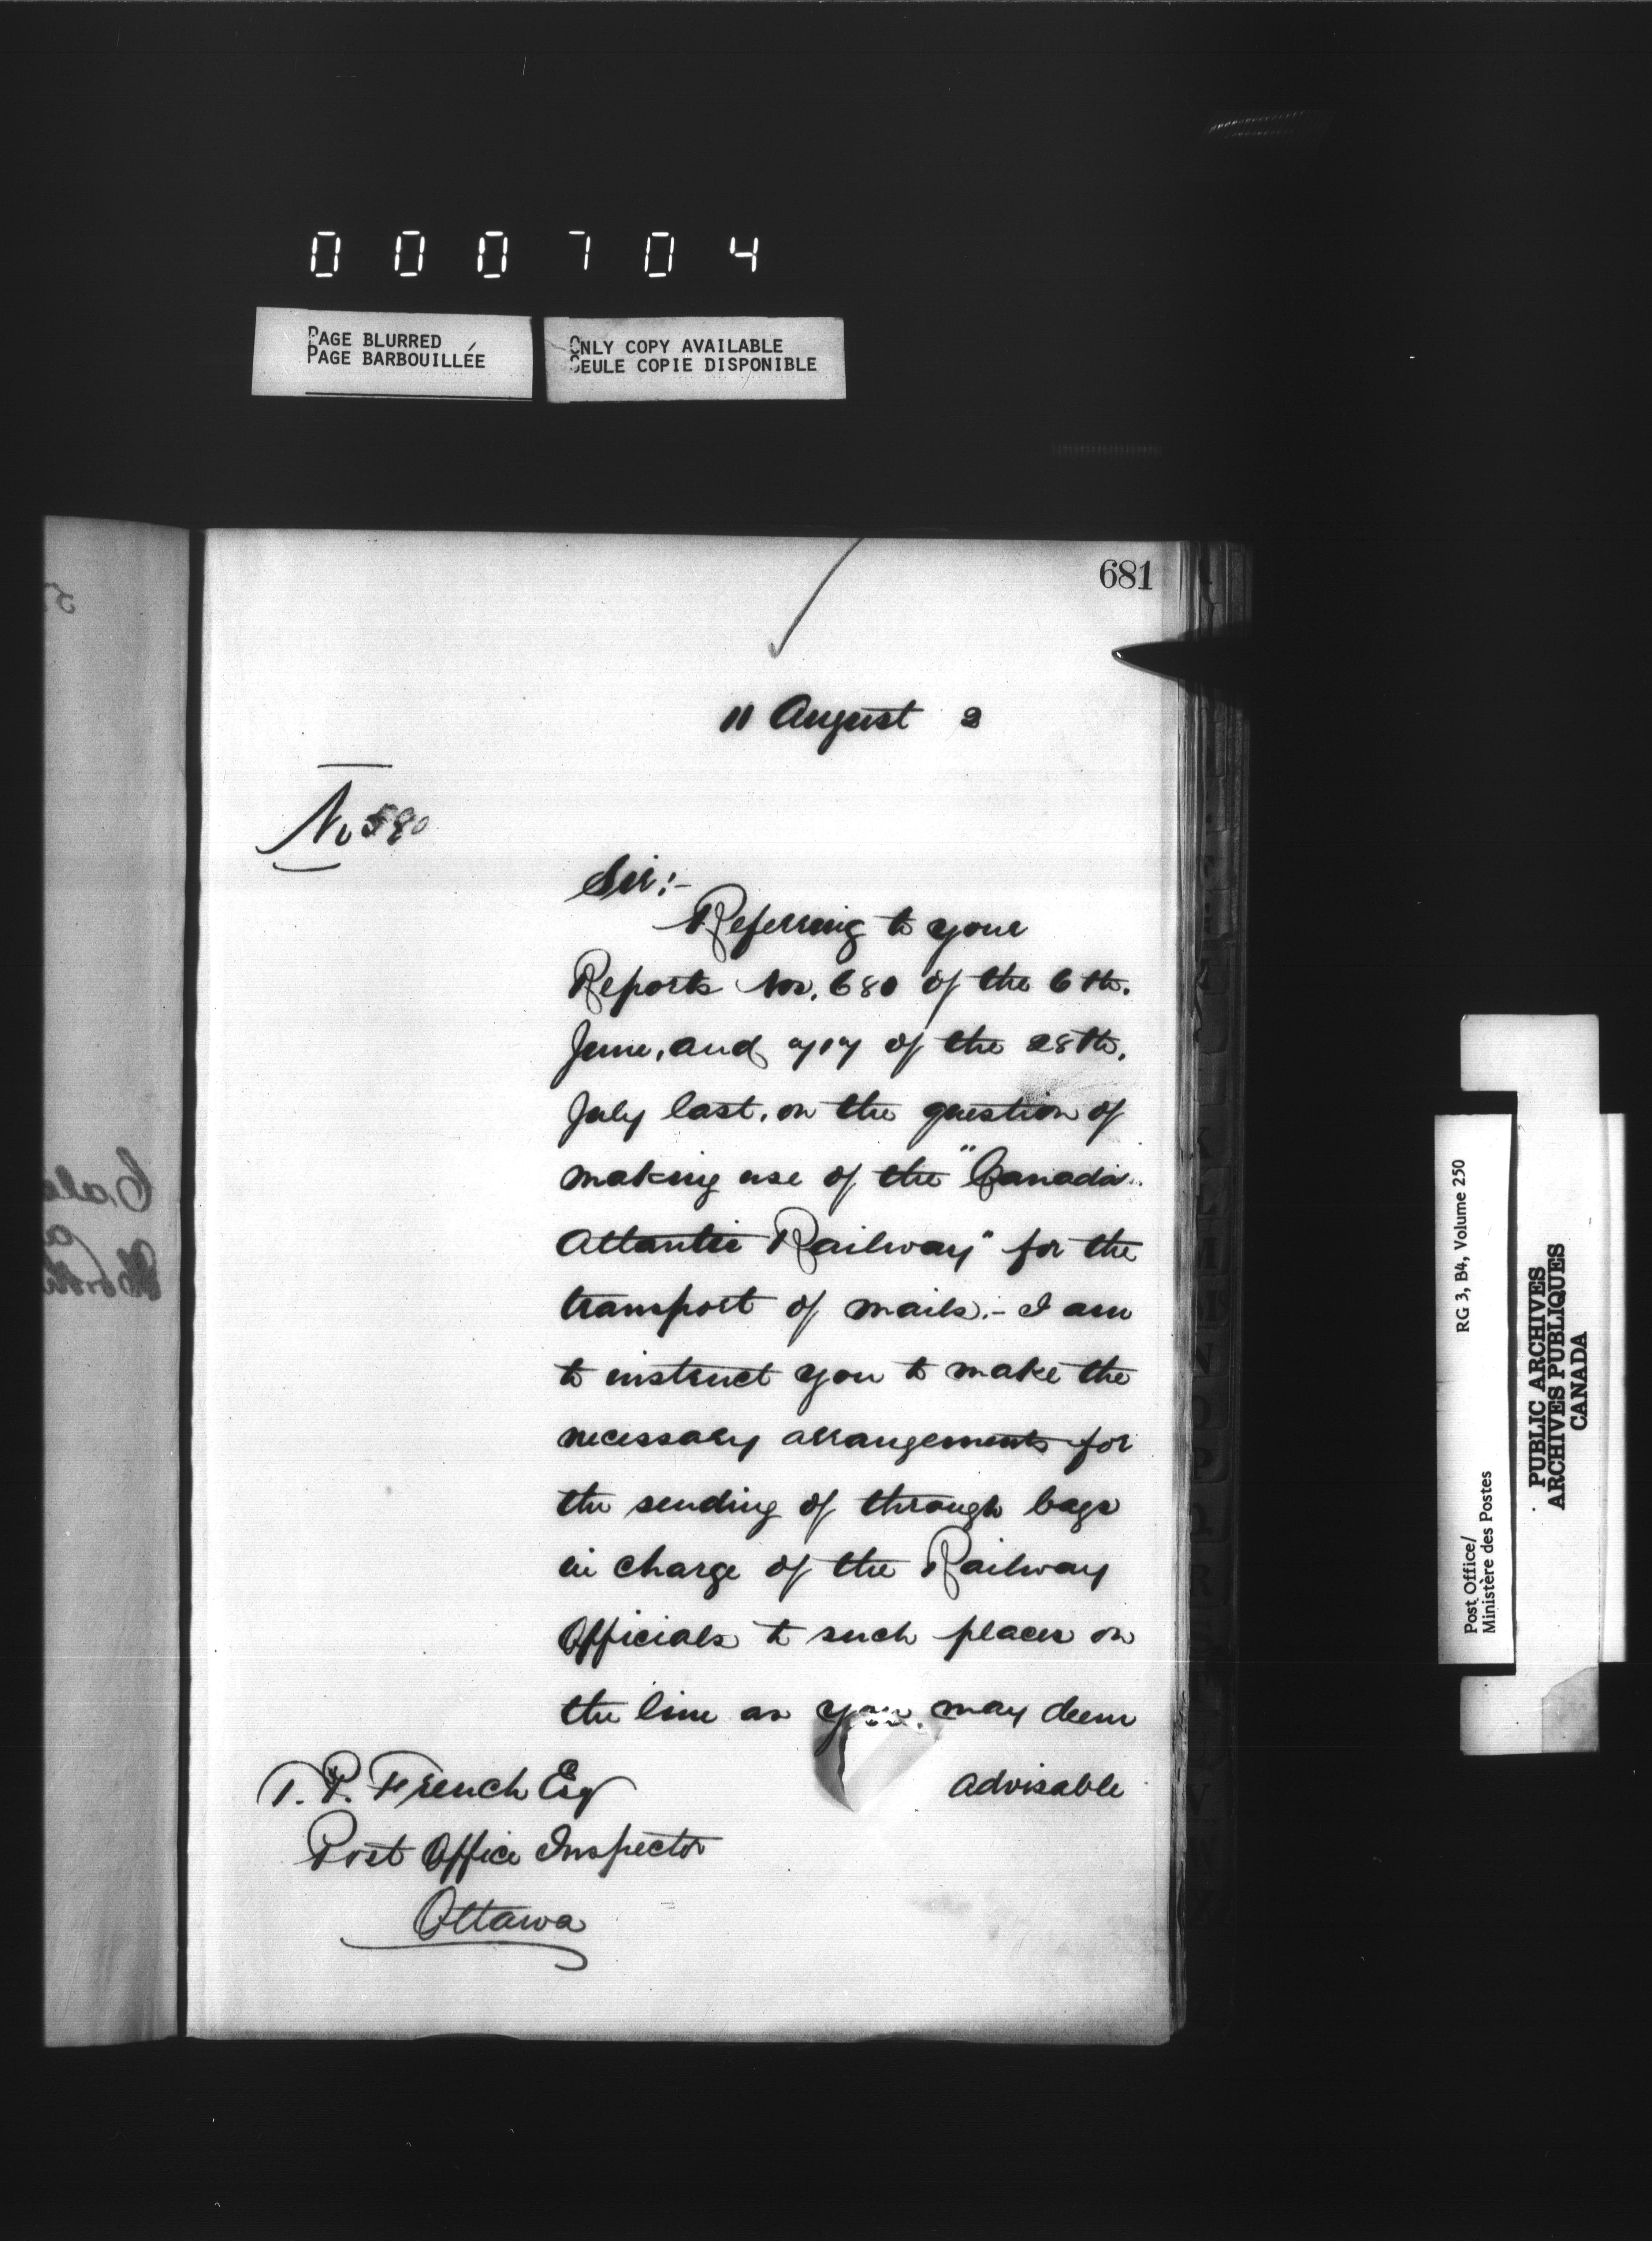 0 0 0 7 0 4
PAGE BLURRED
PAGE BARBOUILLÉE
ONLY COPY AVAILABLE
SEULE COPIE DISPONIBLE
681
11 August 2
No 580
Sir:-
Referring to your
Reports Nos. 680 of the 6th.
June, and 717 of the 28th.
July last, on the question of
making use of the "Canada
Atlantic Railway" for the
transport of mails:- I am
to instruct you to make the
necessary arrangements for
the sending of through bags
in charge of the Railway
Officials to such places on
the line as you may deem
advisable
T. P. French Esq
Post Office Inspector
Ottawa
Post Office/
Ministère des Postes
RG 3, B4, Volume 250
PUBLIC ARCHIVES
ARCHIVES PUBLIQUES
CANADA